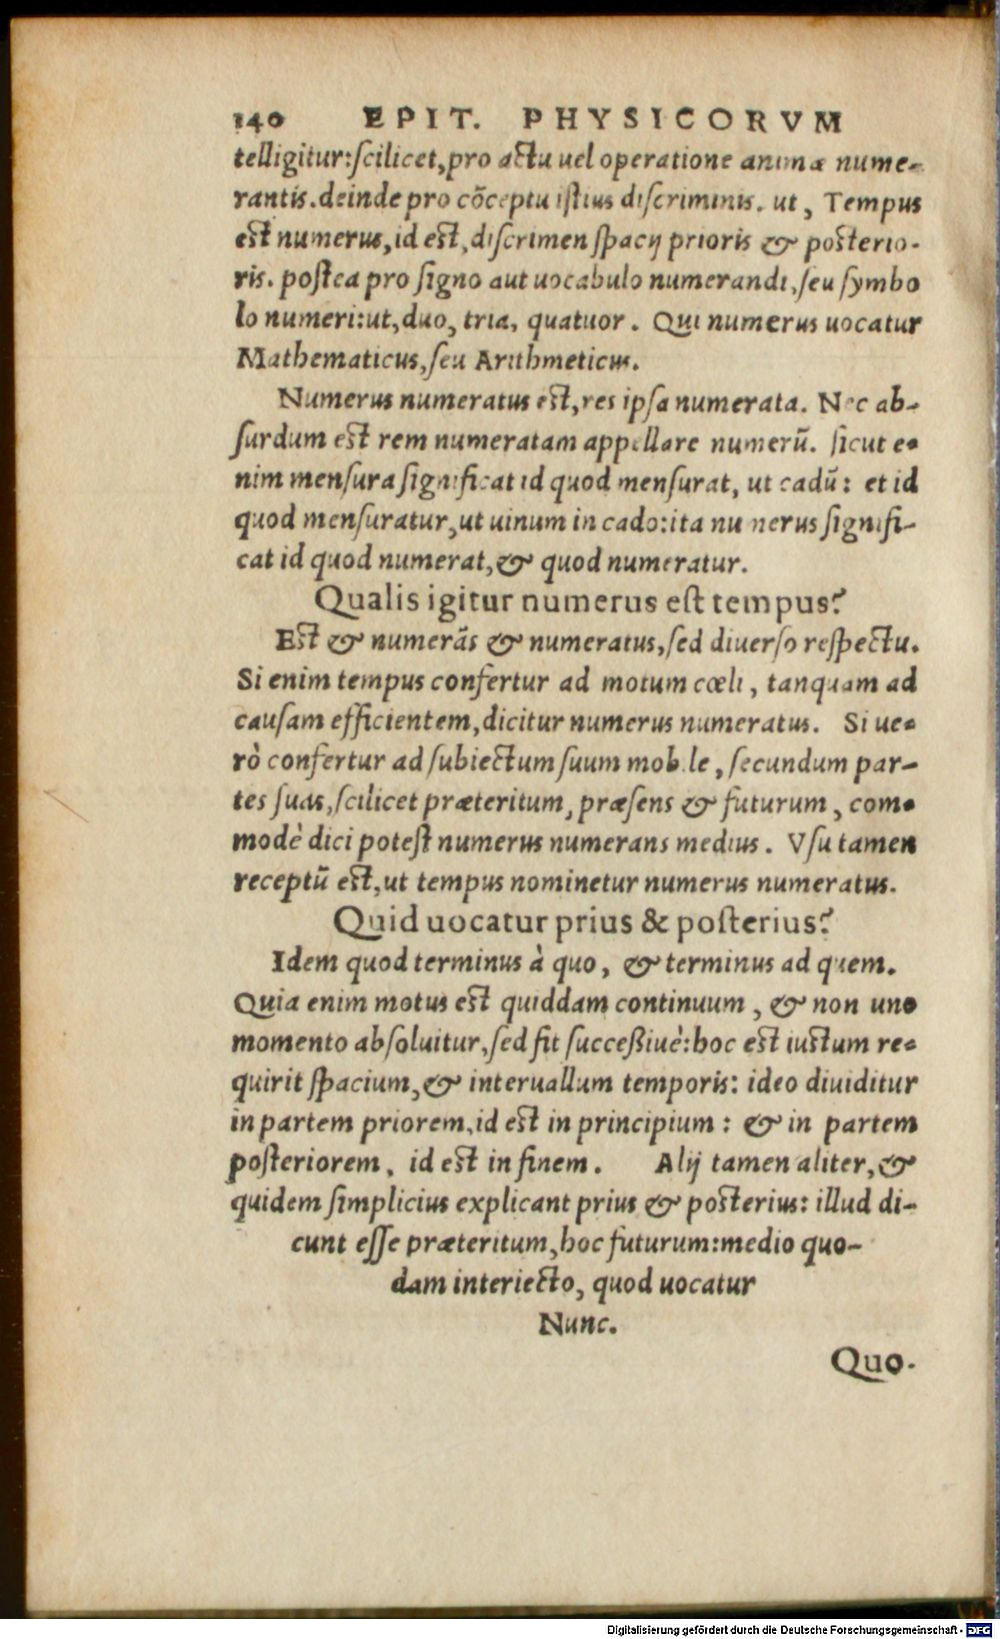 140 EPIT. PHYSICORVM
telligitur:ſcilicet,pro actu uel operatione animæ nume-
rantis.deinde pro cõceptu iſtius diſcriminis. ut, Tempus
eſt numerus,id eſt,diſcrimen ſpacij prioris & poſterio-
ris. poſtea pro ſigno aut uocabulo numerandi,ſeu ſymbo
lo numeri:ut,duo, tria, quatuor. Qui numerus uocatur
Mathematicus,ſeu Arithmeticus.
Numerus numeratus eſt,res ipſa numerata. Nec ab-
ſurdum eſt rem numeratam appellare numerũ. ſicut e-
nim menſura ſignificat id quod menſurat, ut cadũ: et id
quod menſuratur,ut uinum in cado:ita numerus ſignifi-
cat id quod numerat,& quod numeratur.
Qualis igitur numerus eſt tempus?
Eſt & numerãs & numeratus,ſed diuerſo reſpectu.
Si enim tempus confertur ad motum cœli, tanquam ad
cauſam efficientem,dicitur numerus numeratus. Si ue-
rò confertur ad ſubiectum ſuum mobile, ſecundum par-
tes ſuas,ſcilicet præteritum, præſens & futurum, com-
modè dici poteſt numerus numerans medius. Vſu tamen
receptũ eſt,ut tempus nominetur numerus numeratus.
Quid uocatur prius & poſterius?
Idem quod terminus à quo, & terminus ad quem.
Quia enim motus eſt quiddam continuum, & non uno
momento abſoluitur,ſed fit ſucceßiuè:hoc eſt iuctum re-
quirit ſpacium,& interuallum temporis: ideo diuiditur
in partem priorem,id eſt in principium: & in partem
poſteriorem, id eſt in finem. Alij tamen aliter,&
quidem ſimplicius explicant prius & poſterius: illud di-
cunt eſſe præteritum,hoc futurum:medio quo-
dam interiecto, quod uocatur
Nunc.
Quo-
Digitalisierung gefördert durch die Deutsche Forschungsgemeinschaft - DFG